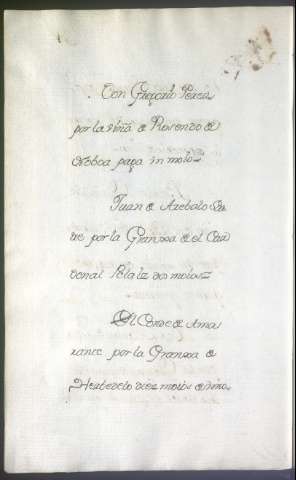 Don Gregorio Perez
por la viña de Rosendo de
Noboa paga un moio
Juan de Azebalo Pa
dre por la Granxa de el Car
denal Pelaez dos moios
El Conde de Ama
rante por la Granxa de
Herbedelo diez moios de vino